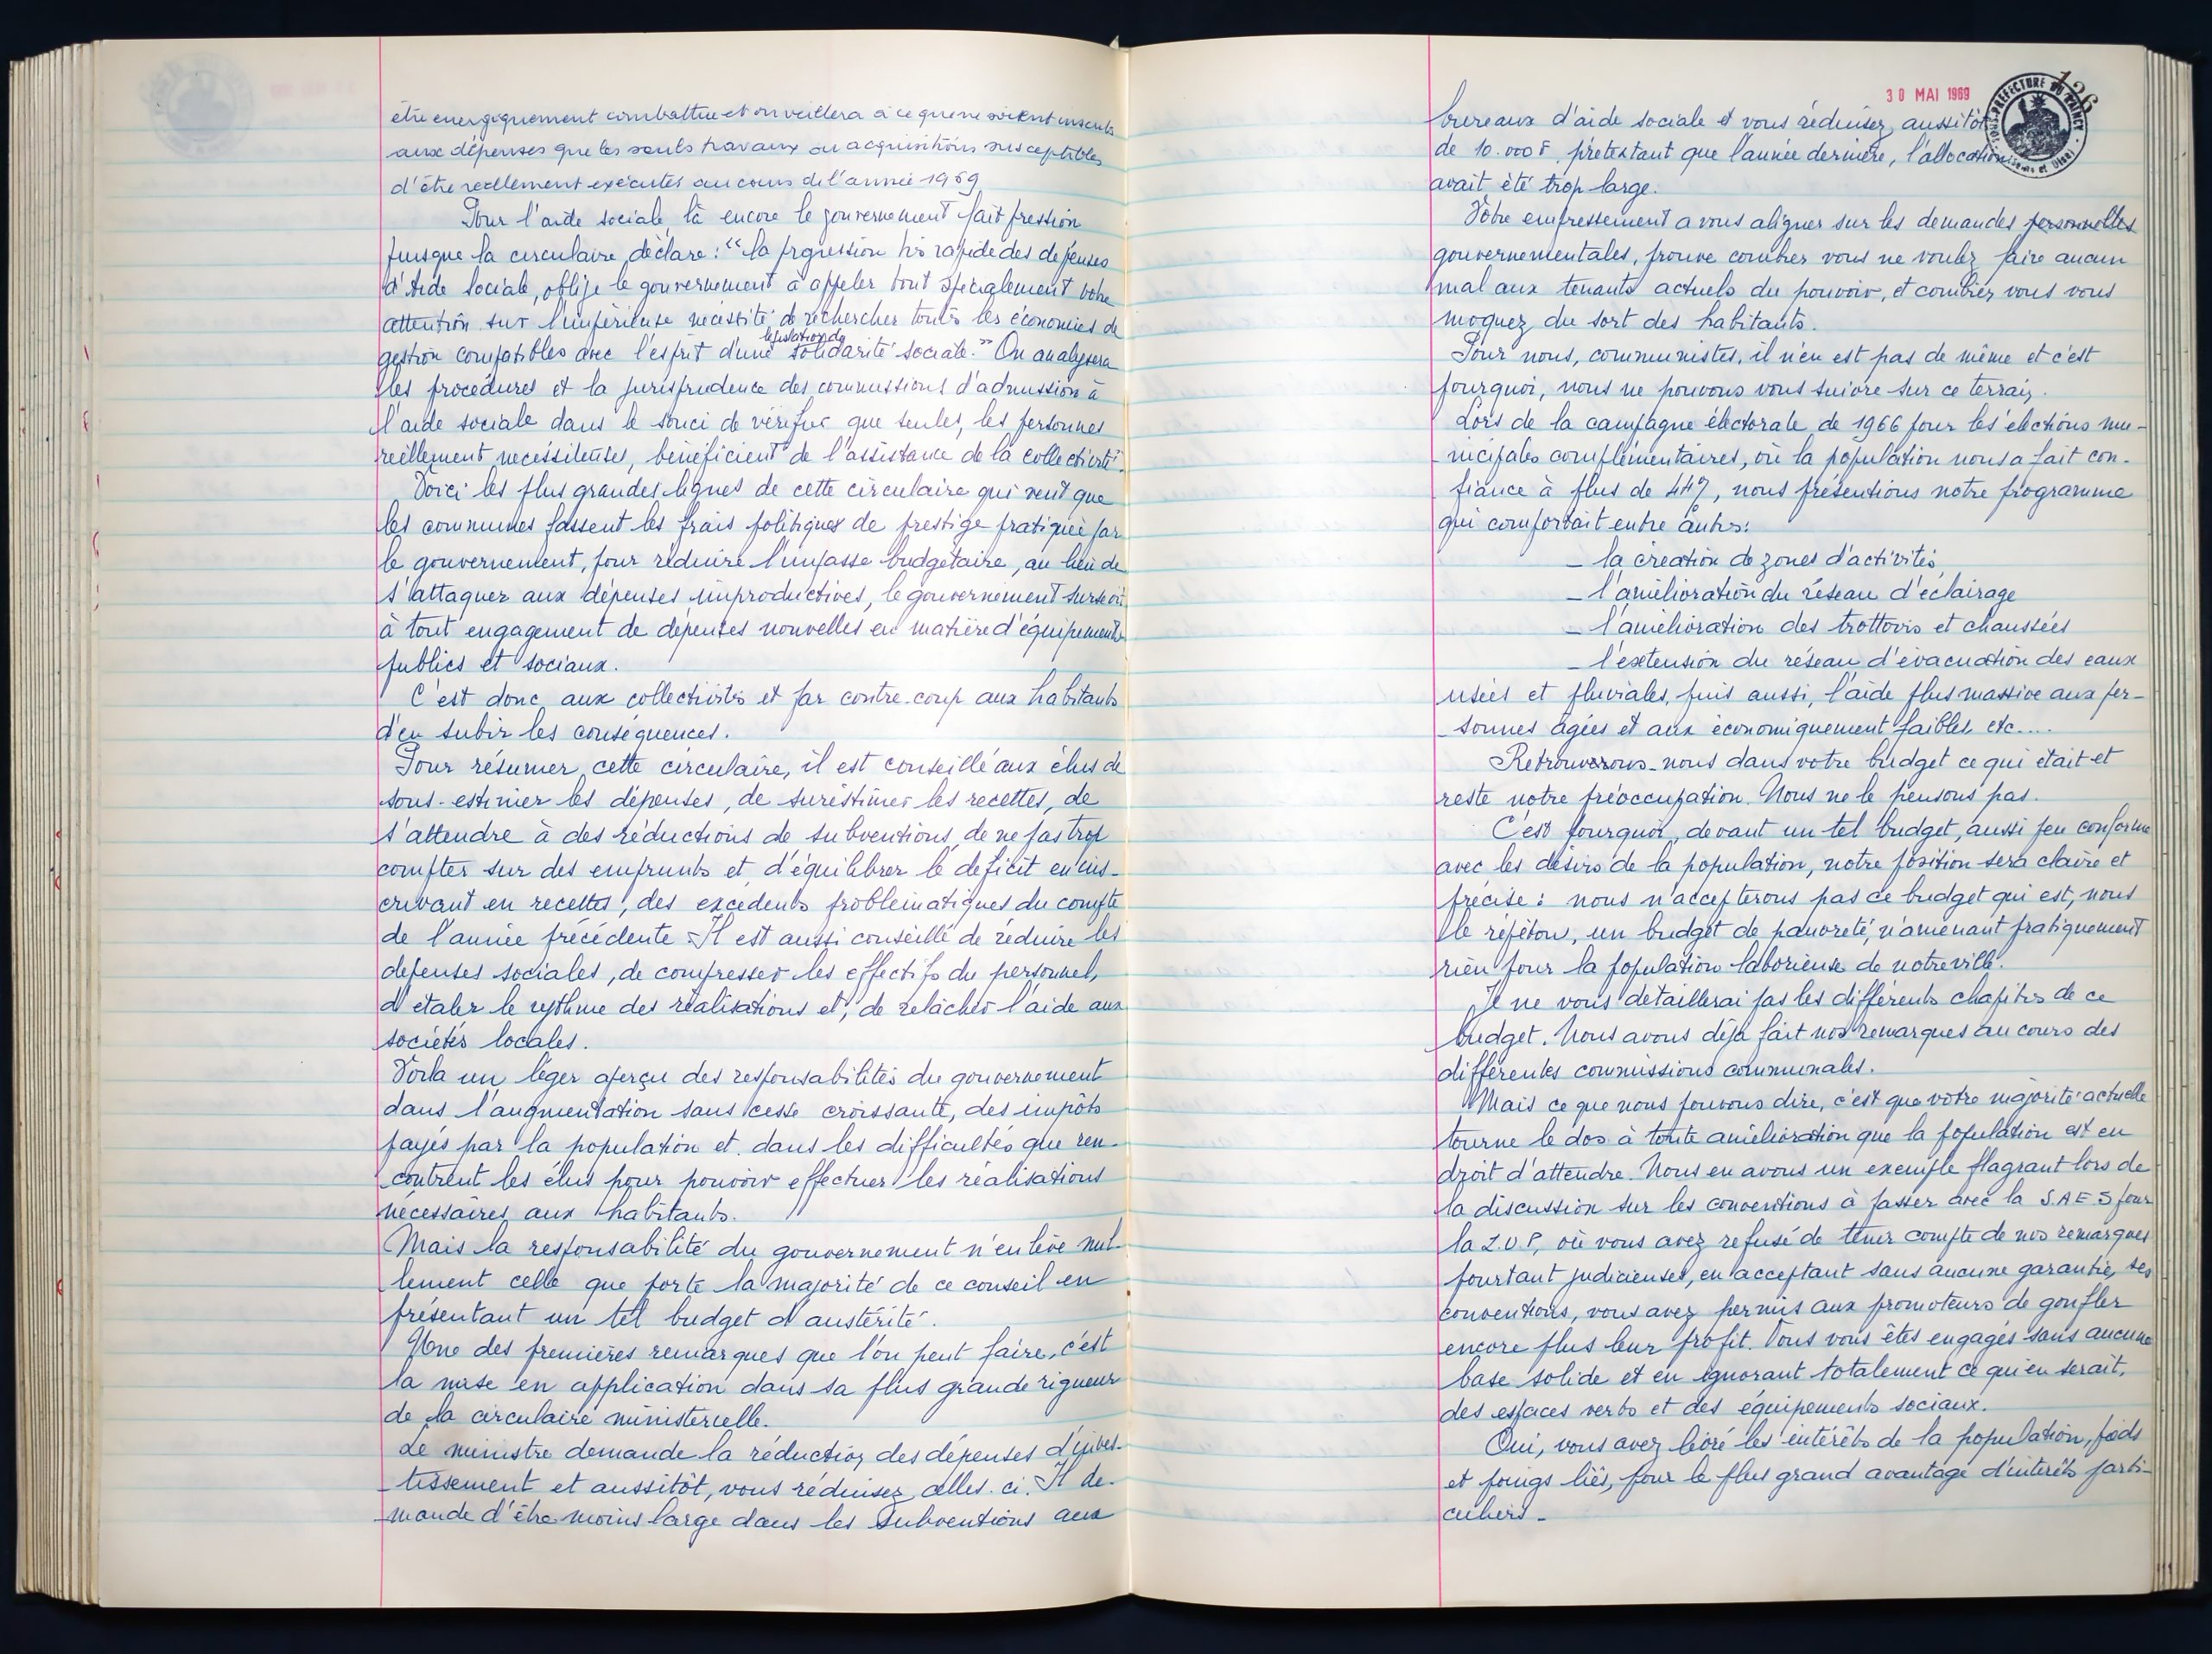 être energiquement combattue et on veillera à ce que ne soient inscrits
aux dépenses que les seuls travaux ou acquisitions susceptibles
d'être réellement exécutés au cours de l'année 1969
Pour l'aide sociale, là encore le gouvernement fait pression
puisque la circulaire déclare : "la prgression très rapide des dépenses
d'Aide Sociale, oblige le gouvernement à appeler tout spécialement votre
attention sur l'impérieuse nécessité de rechercher toutes les économies de
législation de
gestion compatibles avec l'esprit d'une solidarité sociale." On analysera
les procédures et la jurisprudence des commissions d'admission à
l'aide sociale dans le souci de vérifier que seules, les personnes
réellement nécessiteuses, bénéficient de l'assistance de la collectivité.
Voici les plus grandes lignes de cette circulaire qui veut que
les communes fassent les frais politiques de prestige pratiquée par
le gouvernement, pour réduire l'impasse budgétaire, au lieu de
s'attaquer aux dépenses improductives, le gouvernement surseoit
à tout engagement de dépenses nouvelles en matière d'équipements
publics et sociaux.
C'est donc aux collectivités et par contre-coup aux habitants
d'en subir les conséquences.
Pour résumer cette circulaire, il est conseillé aux élus de
sous-estimer les dépenses, de surestimer les recettes, de
s'attendre à des réductions de subventions, de ne pas trop
compter sur des emprunts et d'équilibrer le déficit en ins-
crivant en recettes, des excédents problématiques du compte
de l'année précédente. Il est aussi conseillé de réduire les
dépenses sociales, de compresser les effectifs du personnel,
d'étaler le rythme des réalisations et, de relâcher l'aide aux
sociétés locales.
Voilà un léger aperçu des responsabilités du gouvernement
dans l'augmentation sans cesse croissante, des impôts
payés par la population et dans les difficultés que ren-
contrent les élus pour pouvoir effectuer les réalisations
nécessaires aux habitants.
Mais la responsabilité du gouvernement n'enlève nul-
lement celle que porte la majorité de ce conseil en
présentant un tel budget d'austérité.
Une des premières remarques que l'on peut faire, c'est
la mise en application dans sa plus grande rigueur
de la circulaire ministérielle.
Le ministre demande la réduction des dépenses d'inves-
tissement et aussitôt, vous réduisez celles-ci. Il de-
mande d'être moins large dans les subventions aux
30 MAI 1969
126
SOUS-PRÉFECTURE DU RAINCY
bureaux d'aide sociale et vous réduisez, aussitôt
de 10.000 F, prétextant que l'année dernière, l'allocation
avait été trop large.
Votre empressement a vous aligner sur les demandes personnelles
gouvernementales, prouve combien vous ne voulez faire aucun
mal aux tenants actuels du pouvoir, et combien vous vous
moquez du sort des habitants.
Pour nous, communistes, il n'en est pas de même et c'est
pourquoi, nous ne pouvons vous suivre sur ce terrain.
Lors de la campagne électorale de 1966 pour les élections mu-
nicipales complémentaires, où la population nous a fait con-
fiance à plus de 44%, nous présentions notre programme
qui comportait entre autres:
- la création de zones d'activités,
- l'amélioration du réseau d'éclairage
- l'amélioration des trottoirs et chaussées
- l'extension du réseau d'évacuation des eaux
usées et pluviales, puis aussi, l'aide plus massive aux per-
sonnes âgées et aux économiquement faibles, etc....
Retrouverons-nous dans votre budget ce qui était et
reste notre préoccupation. Nous ne le pensons pas.
C'est pourquoi, devant un tel budget, aussi peu conforme
avec les désirs de la population, notre position sera claire et
précise : nous n'accepterons pas ce budget qui est, nous
le répétons, un budget de pauvreté, n'amenant pratiquement
rien pour la population laborieuse de notre ville.
Je ne vous détaillerai pas les différents chapitres de ce
budget. Nous avons déjà fait nos remarques au cours des
différentes commissions communales.
Mais ce que nous pouvons dire, c'est que votre majorité actuelle
tourne le dos à toute amélioration que la population est en
droit d'attendre. Nous en avons un exemple flagrant lors de
la discussion sur les conventions à passer avec la S.A.E.S pour
la Z.U.P, où vous avez refusé de tenir compte de nos remarques
pourtant judicieuses, en acceptant sans aucune garantie, ses
conventions, vous avez permis aux promoteurs de gonfler
encore plus leur profit. Vous vous êtes engagés sans aucune
base solide et en ignorant totalement ce qu'en serait,
des espaces verts et des équipements sociaux.
Oui, vous avez livré les intérêts de la population, pieds
et poings liés, pour le plus grand avantage d'intérêts parti-
culiers -